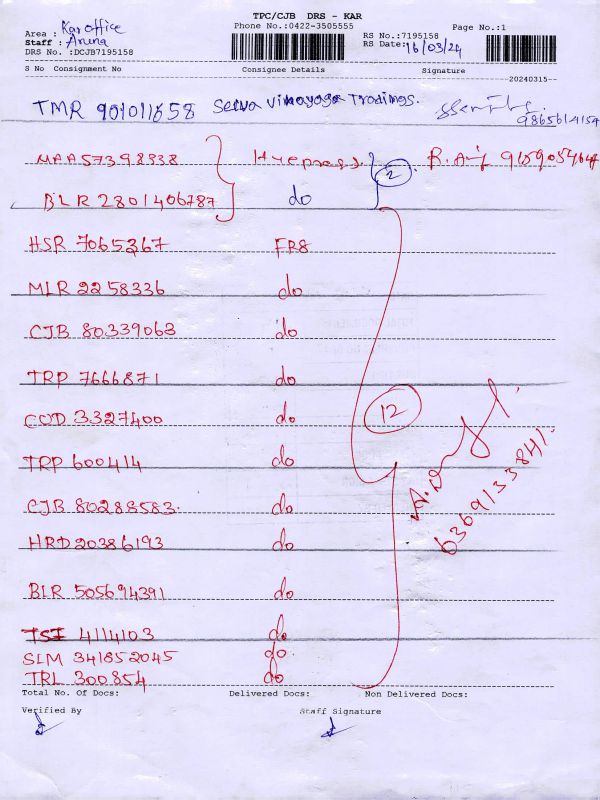 TPC/CJB DRS - KAR
Phone No.:0422-3505555
Page No.:1
Area : Kar office
Staff : Aruna
DRS No. :DCJB7195158
RS No.:7195158
RS Date: 16/03/24
S No Consignment No Consignee Details Signature
20240315
TMR 901011658 Selva Vinayaga Tradings.
MAA 57398938
BLR 2801406787 do 2
HSR 7065367 FR8
MLR 2258336 do
CJB 80339063 do
TRP 7666871 do
COD 3327400 do 12
TRP 600414 do
CJB 80288583. do
6369133841
HRD 20386193 do
BLR 505694391 do
4114103 do
SLM 341852045 do
TRL 300854 do
Total No. Of Docs: Delivered Docs: Non Delivered Docs:
Verified By Staff Signature